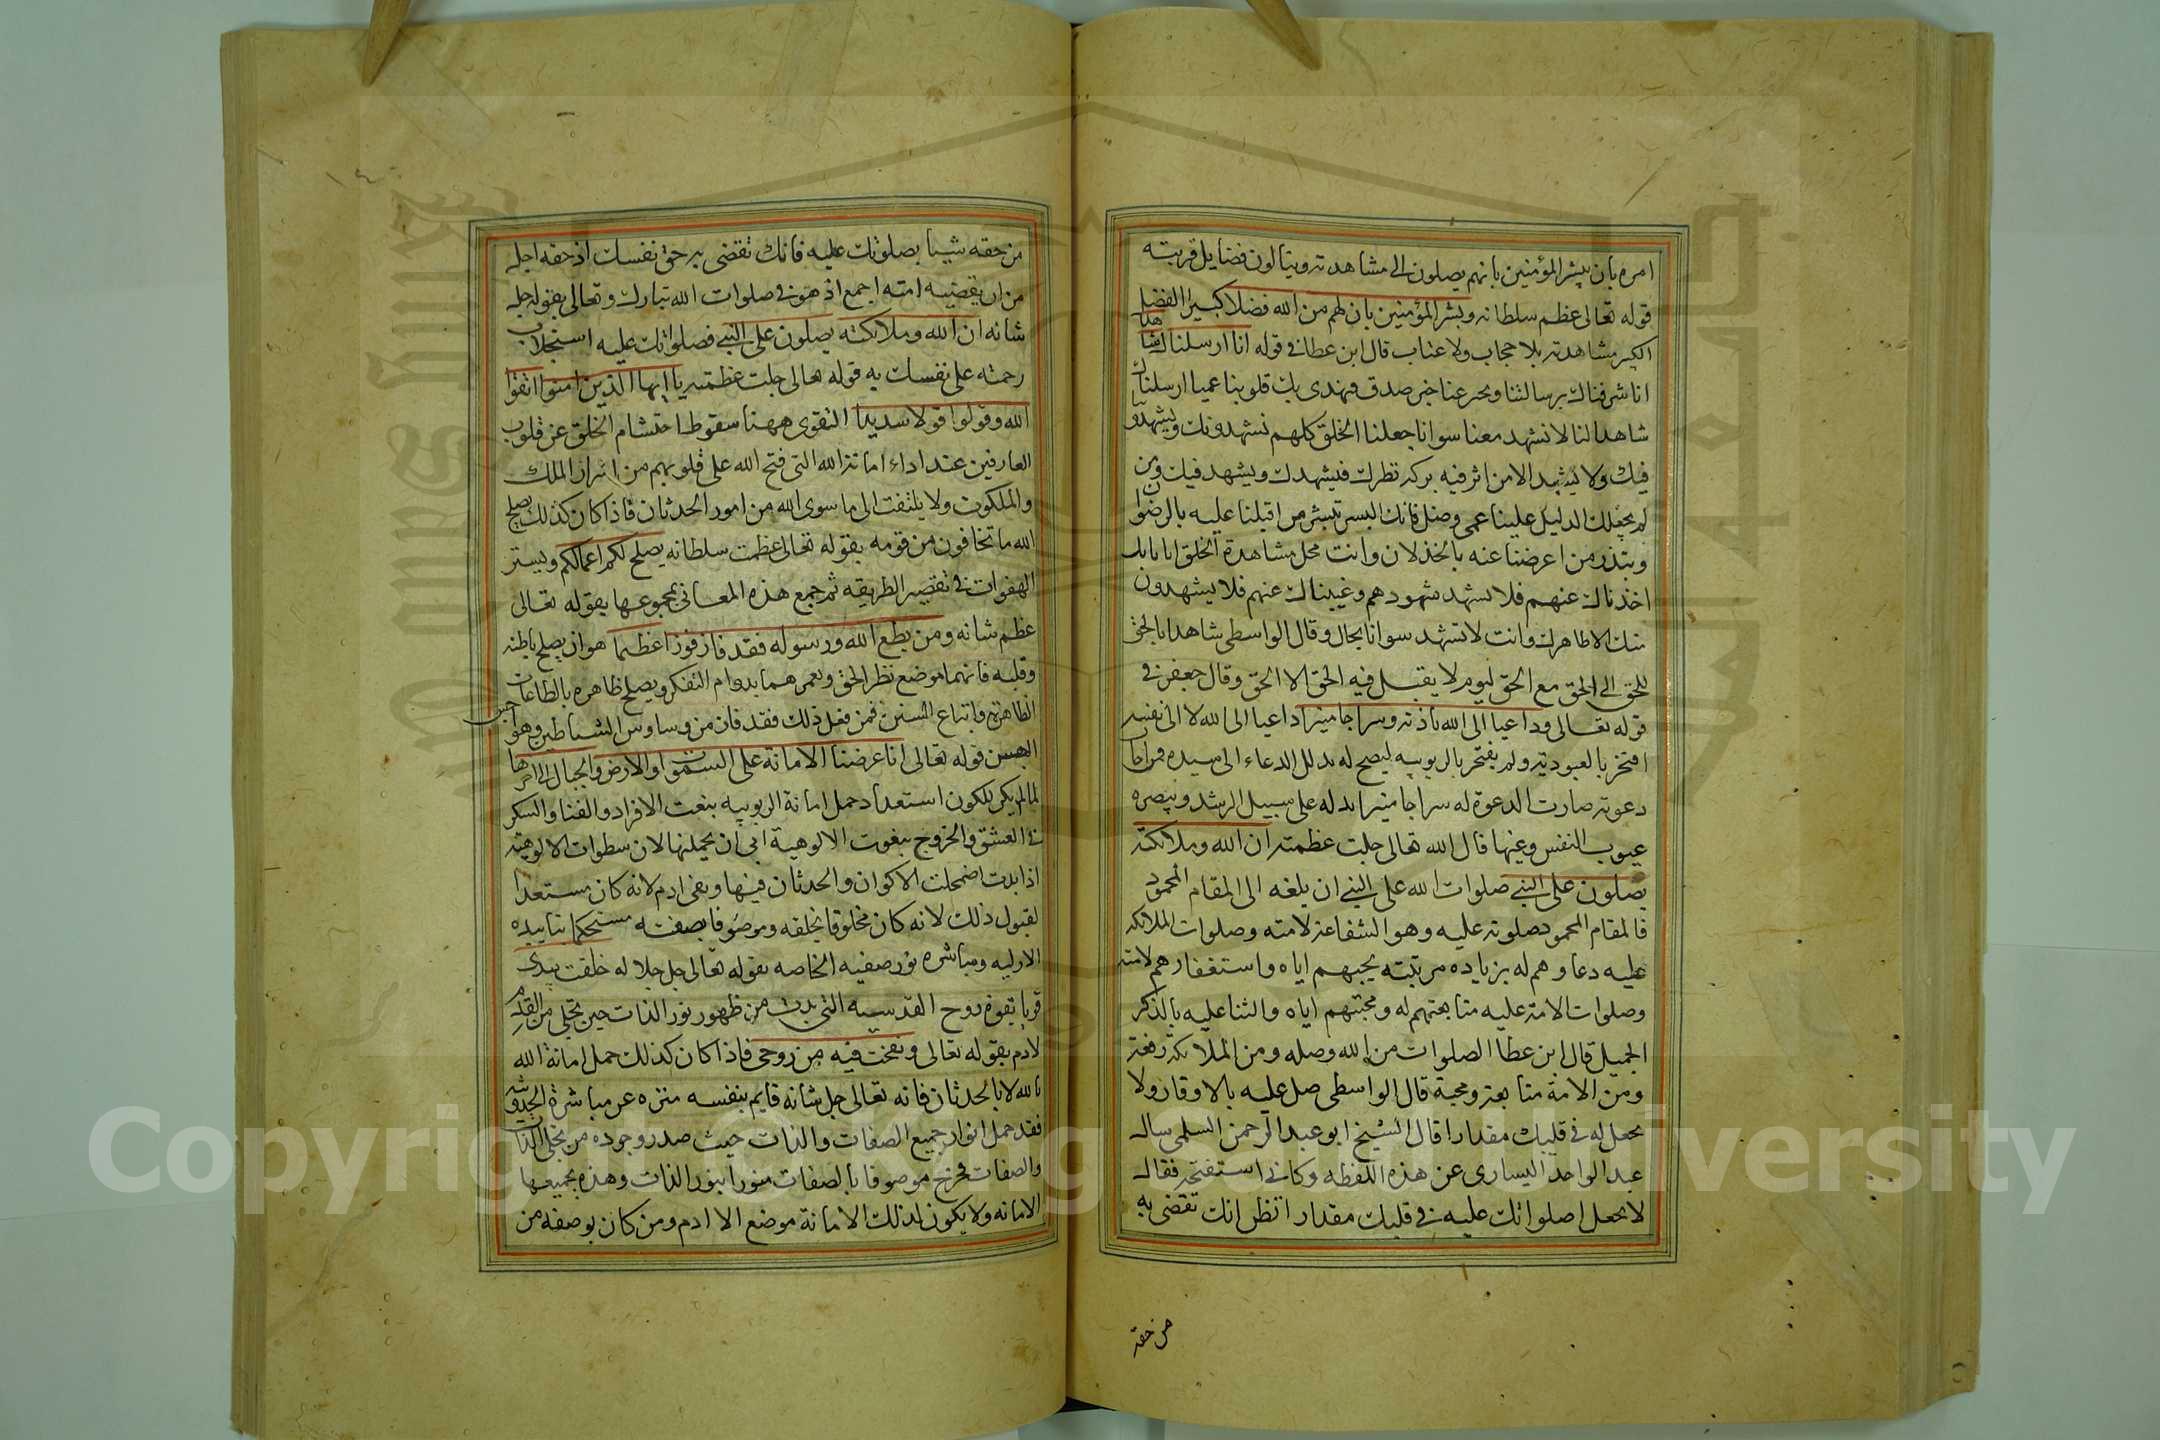 امره بان يبشر المؤمنين بانهم يصلون الى مشاهدته وينالون فضايل قربته
قوله تعالى عظم سلطانه وبشر المؤمنين بان لهم من الله فضلا كبيرا الفضل
الكبير مشاهدته بلا حجاب ولا عتاب قال ابن عطا في قوله انا ارسلناك شاهدا
انا شرفناك برسالتنا خبر صدق فهدى بك قلوبنا عميا ارسلناك
شاهدا لنا لا تشهد معنا سوانا جعلنا الخلق كلهم تشهدونك ويشهدوا
فيك ولا يشهد الا من اثر فيه بركة نظرك فيشهدك ويشهد فيك ومن
لم يجعلك الدليل علينا عمى وضل فانك البسر تبشر من اقبلنا عليه بالرضوان
وتنذر من اعرضنا عنه بالخذلان وانت محل مشاهدة الخلق ايانا بك
اخذناك عنهم فلا تشهد شهودهم وغيبناك عنهم فلا يشهدون
منك الا ظاهرك وانت لا تشهد سوانا بحال وقال الواسطى شاهدا بالحق
للحق الى الحق مع الحق ليوم لا يقبل فيه الحق الا الحق وقال جعفر في
قوله تعالى وداعيا الى الله باذنه وسراجا منيرا داعيا الى الله لا الى نفسه
افتخر بالعبودية ولم يفتخر بالربوبيه ليصح له بذلك الدعاء الى سيده فمن اجاب
دعوته صارت الدعوة له سراجا منيرا يدله على سبيل الرشد ويبصره
عيوب النفس وغيها قال الله تعالى جلت عظمته ان الله وملائكته
يصلون على النبي صلوات الله على النبي ان يلغه الى المقام المحمود
فالمقام المحمود صلوته عليه وهو الشفاعة لامته وصلوات الملائكه
عليه دعاوهم له بزياده مرتبته بحبهم اياه واستغفارهم لامته
وصلوات الامة عليه متابعتهم له ومحبتهم اياه والثنا عليه بالذكر
الجميل قال ابن عطا الصلوات من الله وصله ومن الملائكة رفعة
ومن الامة متابعة ومحبة قال الواسطى صل عليه بالاوقار ولا
تجعل له في قلبك مقدارا قال الشيخ ابو عبد الرحمن السلمى سالت
عبد الواحد اليسارى عن هذه اللفظه وكانى استفتحه فقال
لا تجعل اصلواتك عليه في قلبك مقدارا تظن انك تقضى به
من حقه
من حقه شيئا بصلوتك عليه فانك تقضى به حق نفسك اذ حقه اجل
من ان يقضيه امته اجمع اذ هو في صلوات الله تبارك وتعالى بقوله جل
شانه ان الله وملائكته يصلون على النبي فصلواتك عليه استجلاب
رحمته على نفسك به قوله تعالى جلت عظمته يا ايها الذين امنوا اتقوا
الله وقولوا قولا سديدا التقوى ههنا سقوط احتشام الخلق عن قلوب
العارفين عند اداء امانة الله التى فتح الله على قلوبهم من اسرار الملك
والملكوت ولا يلتفت الى ما سوى الله من امور الحدثان فاذا كان كذلك يصلح
الله ما تخافون من قومه بقوله تعالى عظمت سلطانه يصلح لكم اعمالكم ويستر
الهفوات في تقصير الطريقه ثم جمع هذه المعانى بمجموعها بقوله تعالى
عظم شانه ومن يطع الله ورسوله فقد فاز فوزا عظيما هو ان يصلح باطنه
وقلبه فانهما موضع نظر الحق وتعمرهما بدوام التفكر ويصلح ظاهره بالطاعات
الظاهرة واتباع السنن فمن فعل ذلك فقد فاز من وساوس الشياطين وهواجس
النفس قوله تعالى انا عرضنا الامانة على السموات والارض والجبال الى اخرها
لما لم يكن للكون استعداد حمل امانة الربوبيه بنعت الافراد والفنا والسكر
في العشق والخروج بنعوت الالوهية ابى ان يحملنها لان سطوات الالوهية
اذا بدت اضمحلت الاكوان والحدثان فيها وبقى ادم لانه كان مستعدا
لقبول ذلك لانه كان مخلوقا بخلقه وموصوفا بصفته مستحكما بتاييده
الازليه ومباشره نور صفيه الخاصه بقوله تعالى جل جلاله خلقت بيدى
قويا بقوة روح القدسيه التى بدت من ظهور نور الذات حين تجلى من القدم
لادم بقوله تعالى ونفخت فيه من روحى فاذا كان كذلك حمل امانة الله
بالله لا بالحدثان فانه تعالى جل شانه قايم بنفسه منزه عن مباشرة الحدوثية
فقد حمل انوار جميع الصفات والذات حيث صدر وجوده من تجلى الذات
والصفات فخرج موصوفا بالصفات منورا بنور الذات وهذه بجميعها
الامانه ولا يكون لذلك الامانة موضع الا ادم ومن كان بوصفه من
Copyright © King Saud University